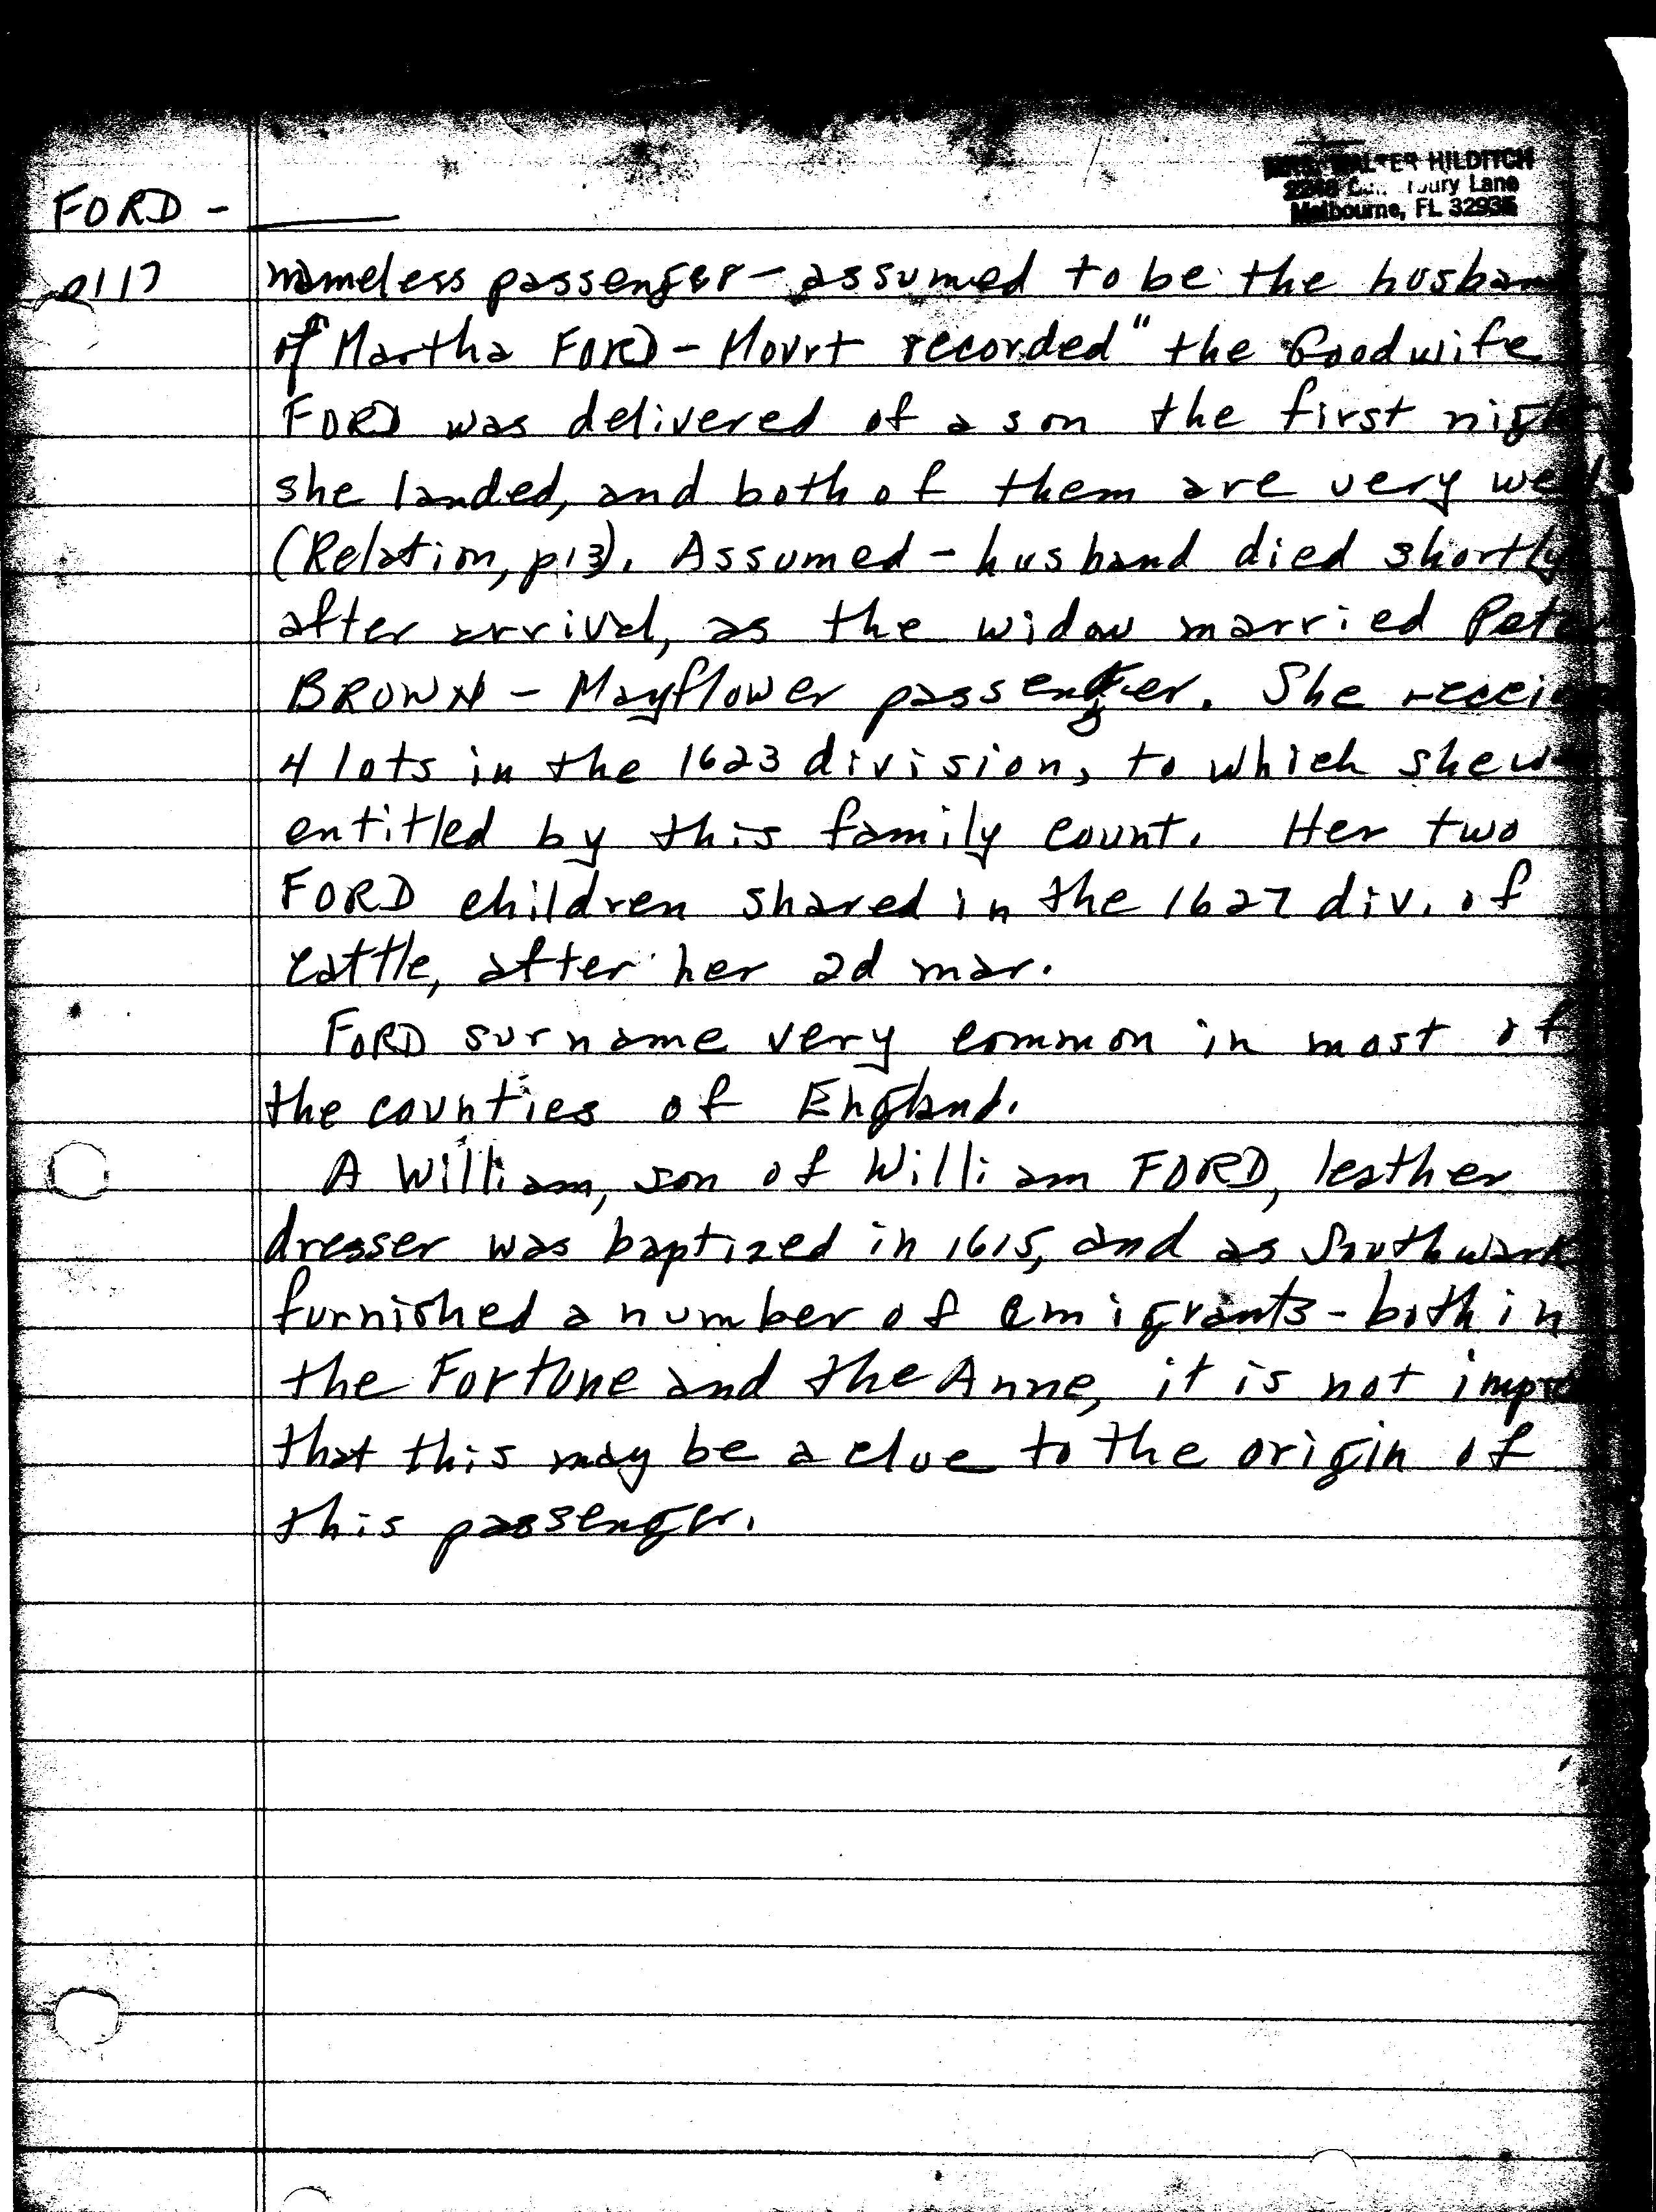 WALTER HILDITCH
Lane
Melbourne, FL 32935
FORD -
p117
nameless passenger - assumed to be the husban
of Martha FORD - Mourt recorded "the Goodwife
FORD was delivered of a son the first nigh
she landed, and both of them are very well
(Relation, p13). Assumed - husband died shortly
after arrival, as the widow married Pete
BROWN - Mayflower passenger. She recei
4 lots in the 1623 division, to which she w
entitled by this family count. Her two
FORD children shared in the 1627 div. of
cattle, after her 2d mar.
FORD surname very common in most of
the counties of England.
A William, son of William FORD, leather
dresser was baptized in 1615, and as Southwark
furnished a number of emigrants - both in
the Fortune and the Anne, it is not impro
that this may be a clue to the origin of
this passenger.